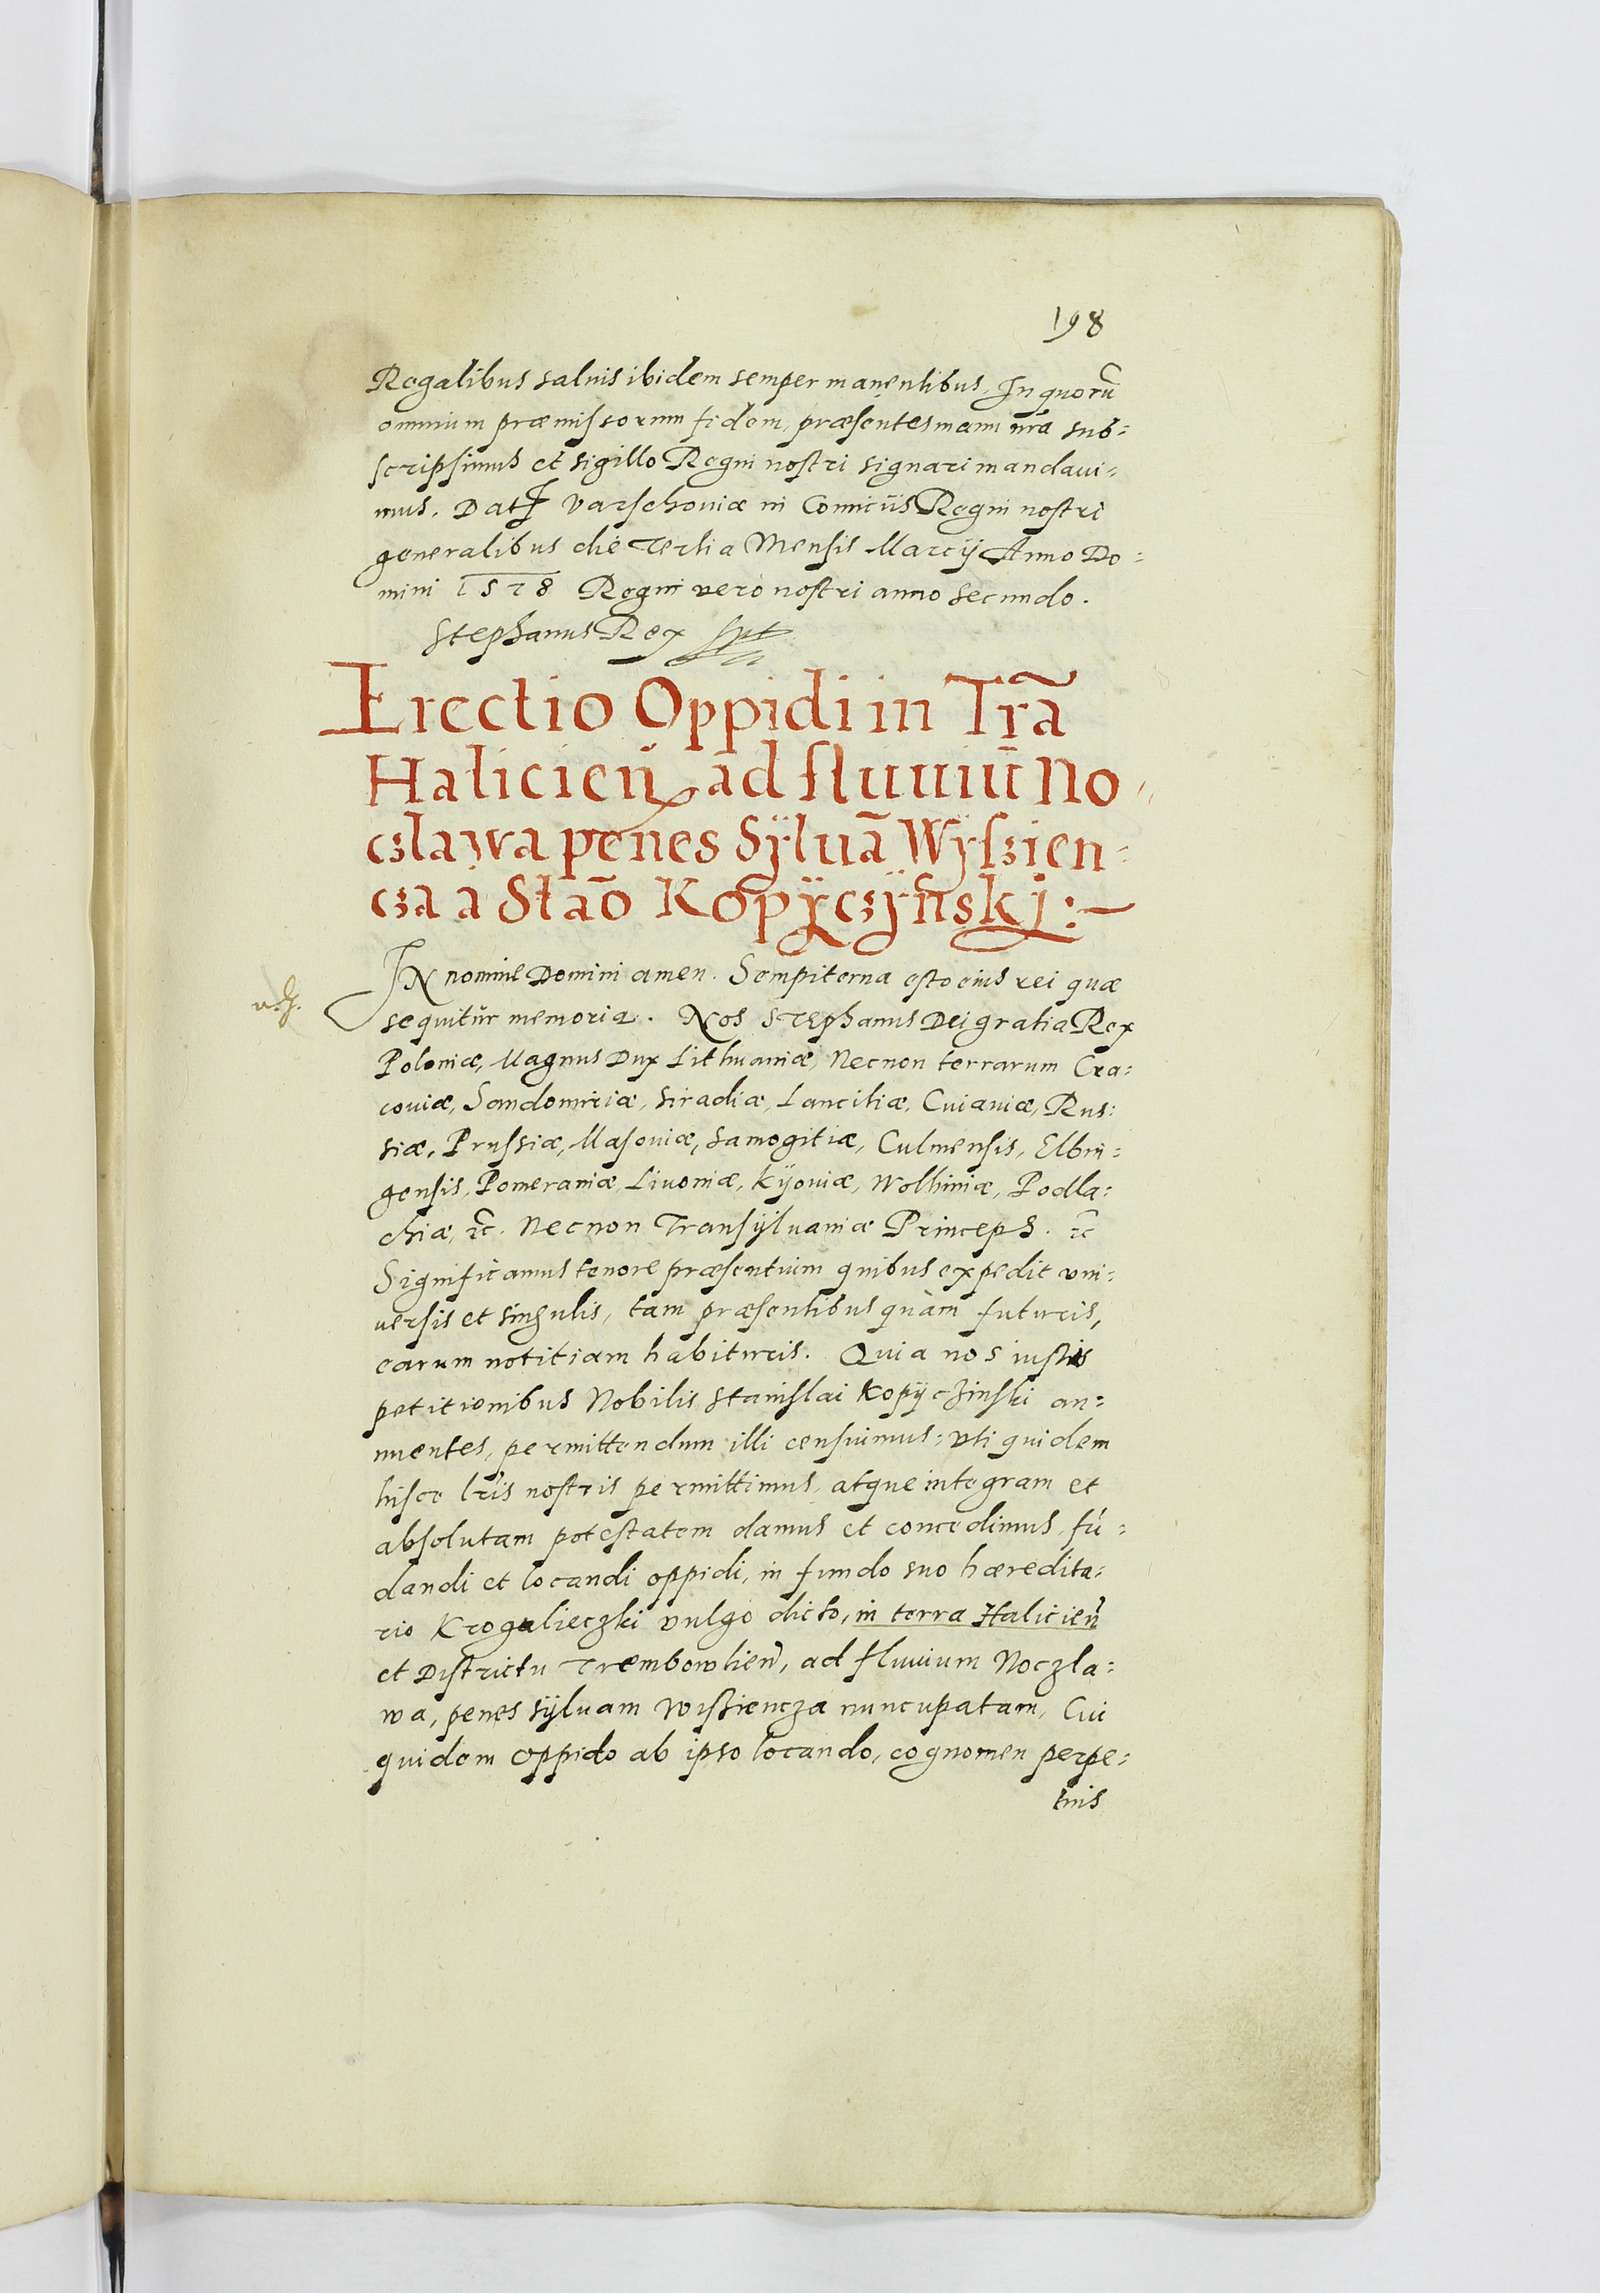 198
Regalibus salvis ibidem semper manentibus. In quorũ
omnium præmissorum fidem, præsentes manu nrã sub=
scripsimus et sigillo Regni nostri signari mandaui=
mus. Dat Varschoviæ in Comitiis Regni nostri
generalibus die Tertia Mensis Marcij Anno Do=
mini 1578 Regni vero nostri anno secundo.
Stephanus Rex
Erectio Oppidi in Trã
Halicien̄ ad fluuiũ No=
czlawa penes Sÿluã Wÿszien=
cza à Stão Kopÿczÿnskj:—
IN nomine Domini amen. Sempiterna esto eius rei quæ
sequitur memoria. Nos Stephanus Dei gratia Rex
Poloniæ, Magnus Dux Lithuaniæ, Necnon terrarum Cra=
coviæ, Sandomiriæ, Siradiæ, Lanciciæ, Cuiaviæ, Rus=
siæ, Prussiæ, Masoviæ, Samogitiæ, Culmensis, Elbin=
gensis, Pomeraniæ, Livoniæ, Kÿoviæ, Wolhiniæ, Podla=
chiæ, ꝛc̃. Necnon Transÿlvaniæ Princeps. ꝛc̃
Significamus tenore præsentium quibus expedit vni=
uersis et singulis, tam præsentibus quàm futuris,
earum notitiam habituris. Quia nos iustis
petitionibus Nobilis Stanislai Kopÿczinski an=
nuentes, permittendum illi censuimus: vti quidem
hisce lr̃is nostris permittimus, atque integram et
absolutam potestatem damus et concedimus, fũ=
dandi et locandi oppidi, in fundo suo hæredita=
rio Krogulieczki vulgo dicto, in terra Halicien̄
et Districtu Trembowlien̄, ad fluuium Noczla=
wa, penes sÿluam Wisziencza nuncupatam, Cui
quidem Oppido ab ipso locando, cognomen perpe=
tuis